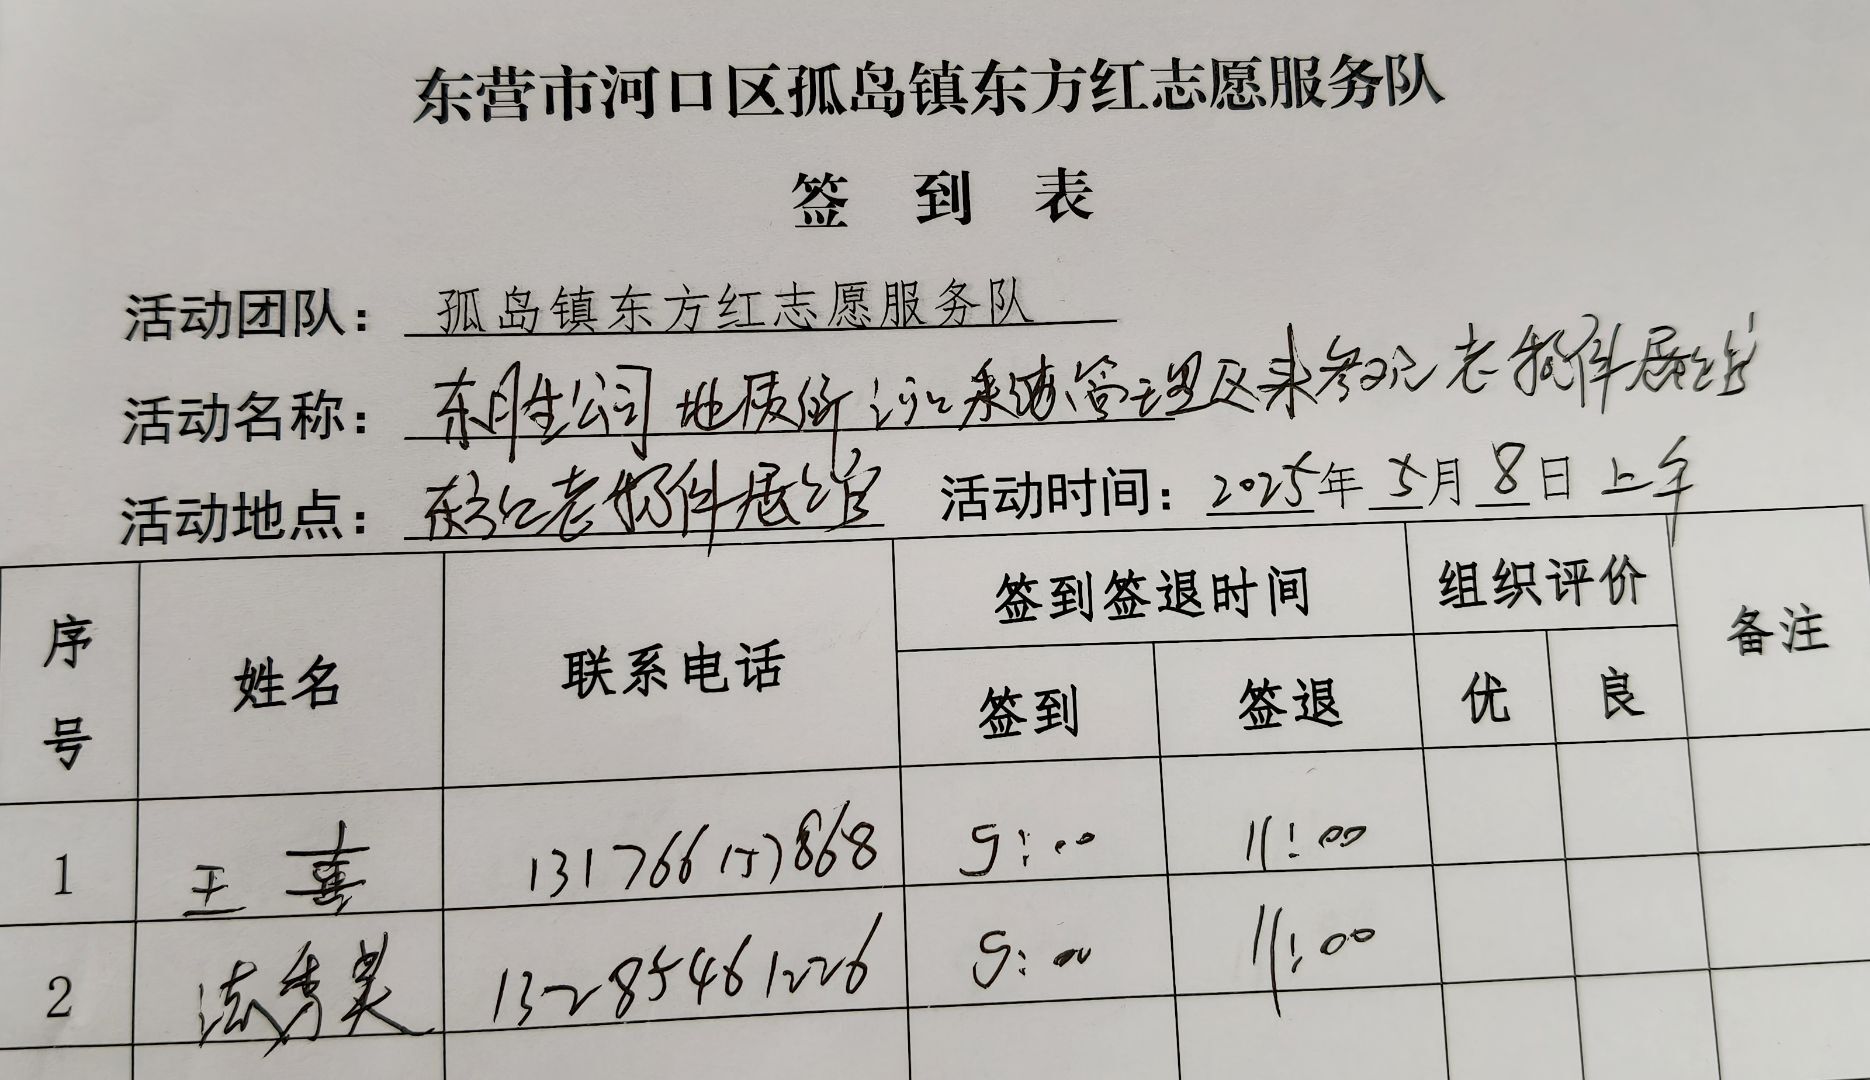 东营市河口区孤岛镇东方红志愿服务队
签 到 表
活动团队：孤岛镇东方红志愿服务队
活动名称：东胜公司地质所 采油管理区来参观老物件展馆
活动地点：东方红老物件展馆 活动时间：2025年5月8日上午
序号 姓名 联系电话 签到签退时间 组织评价 备注
签到 签退 优 良
1 王喜 131766157868 9:00 11:00
2 13285461226 9:00 11:00